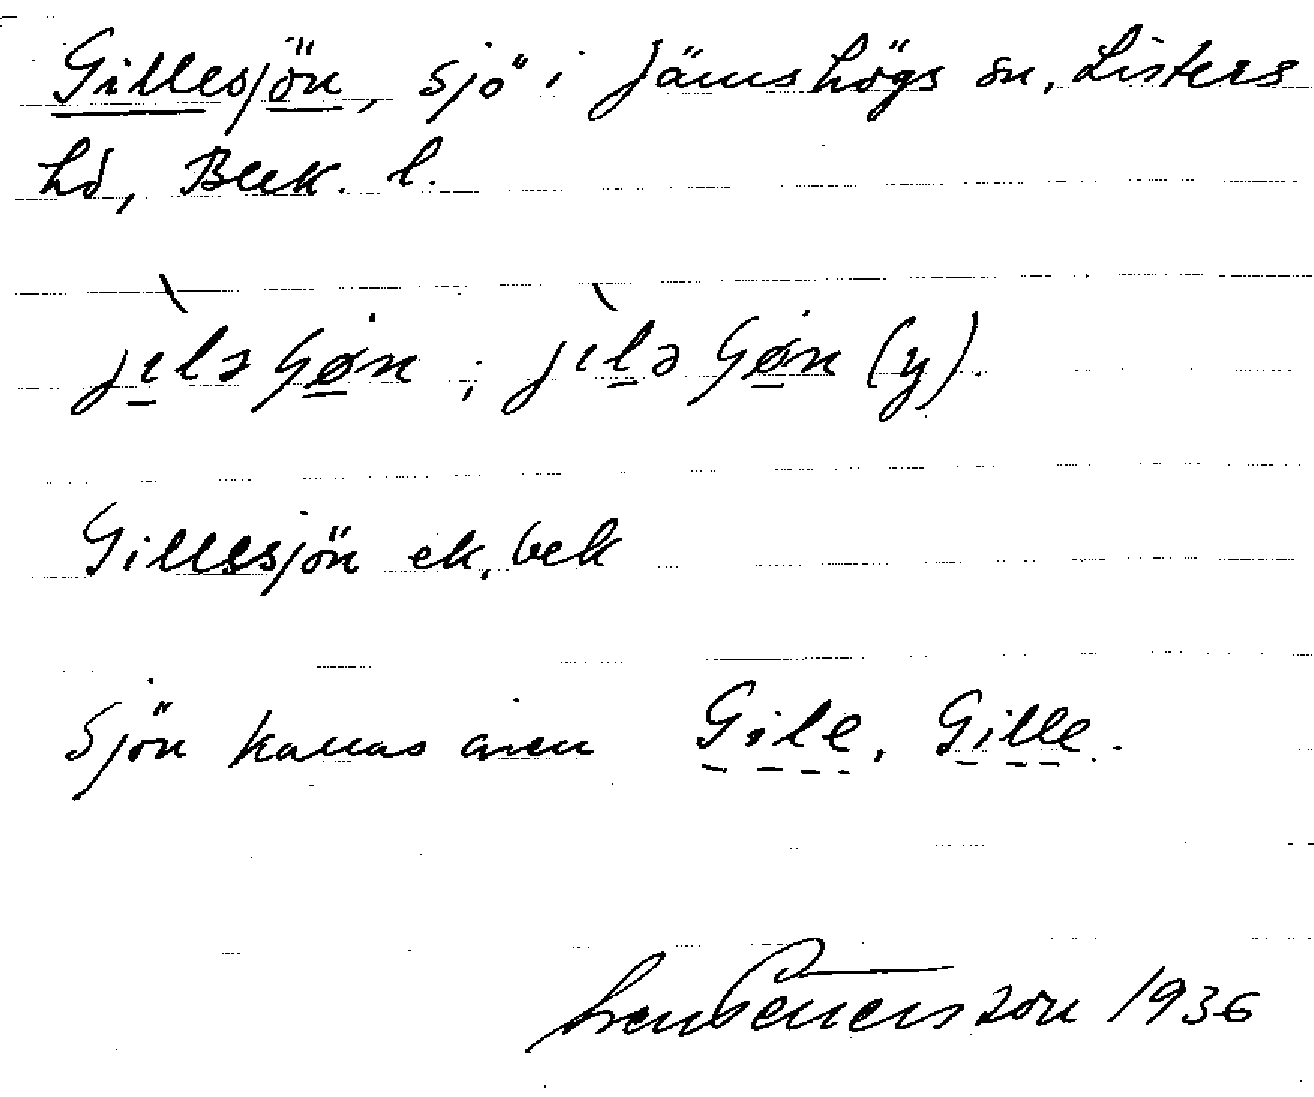 Gillesjön, sjö i Jämshögs sn, Listers
hd, Blek. l.
jìləʂøn ; jìləʂøn (y).
Gillesjön ek. bek
Sjön kallas även Gile, Gille.
1936